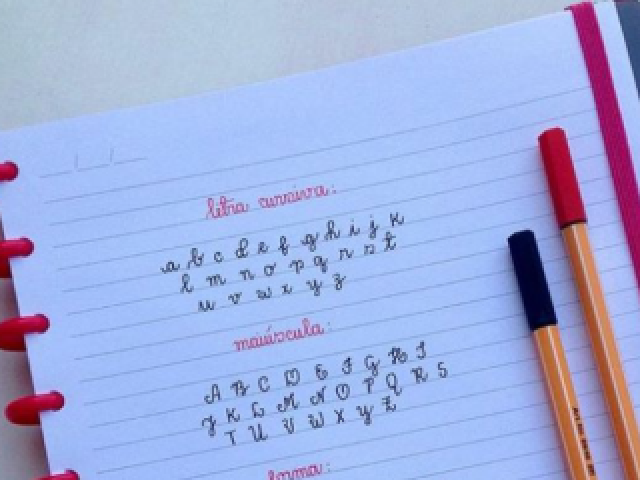 letra cursiva:
a b c d e f g h i j k
l m n o p q r s t
u v w x y z
maiúscula:
A B C D E F G H I
J K L M N O P Q R S
T U V W X Y Z
forma: